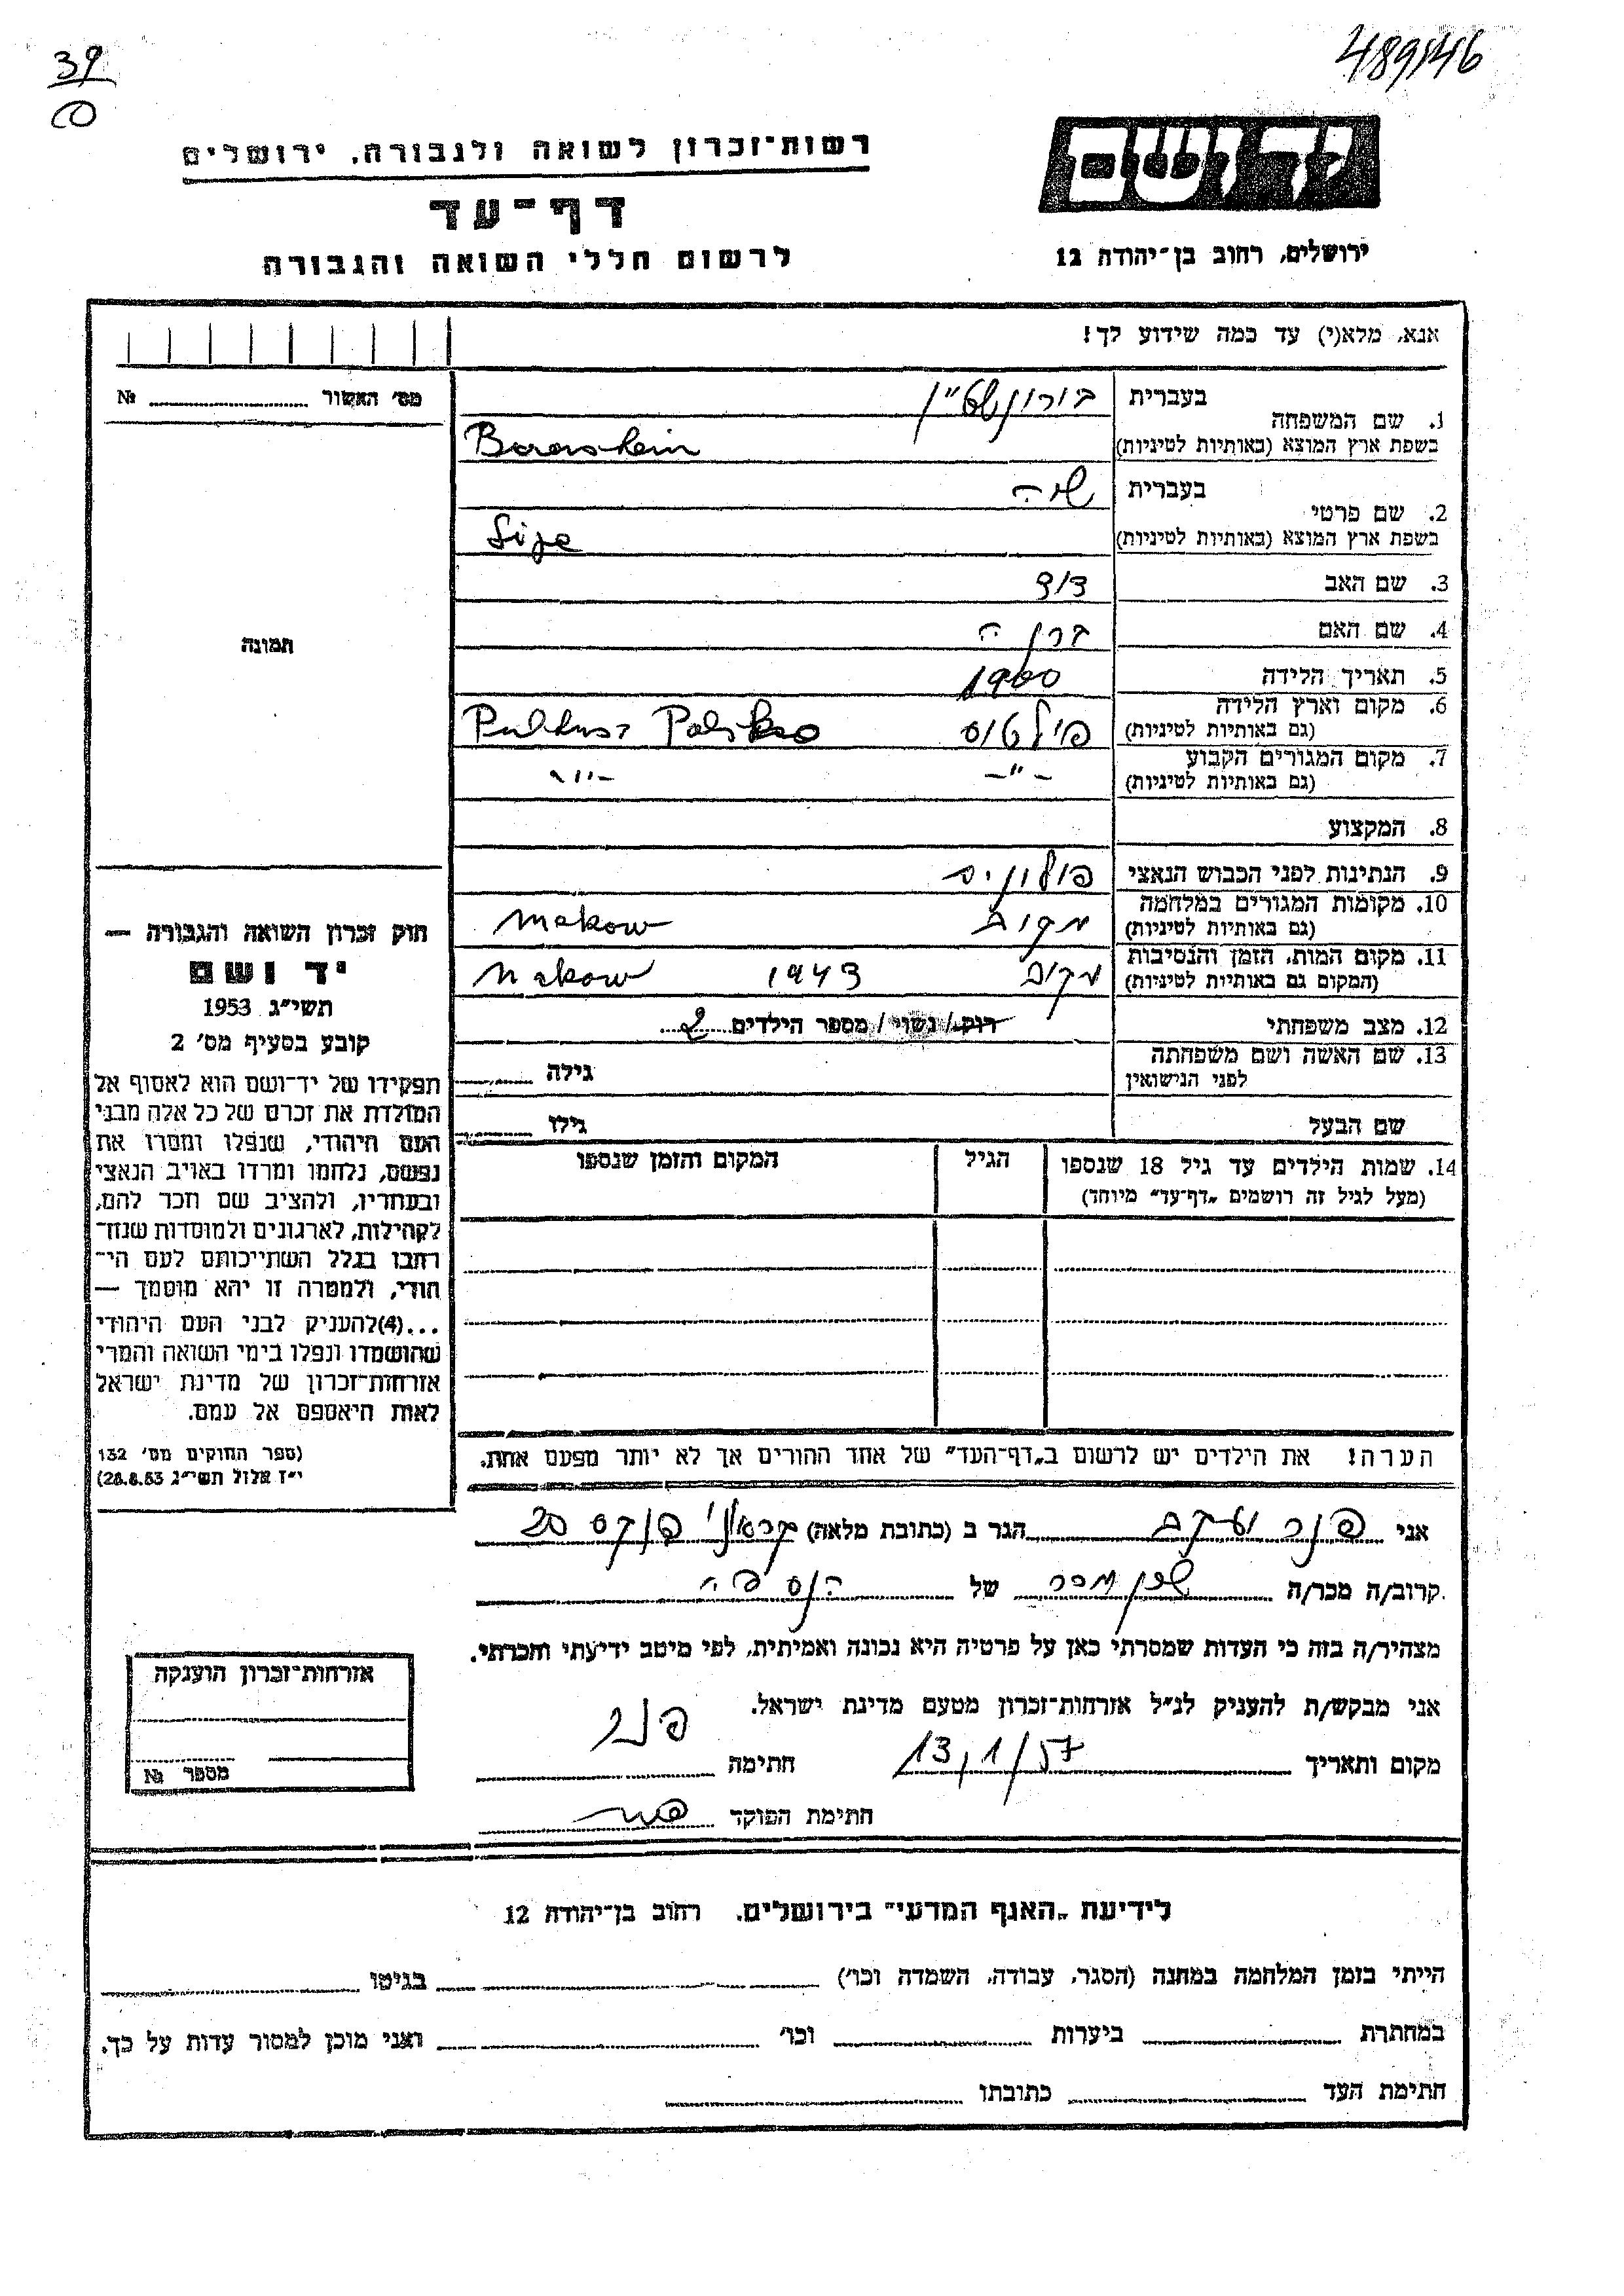 39
489/46
יד ושם
רשות־זכרון לשואה ולגבורה, ירושלים
דף־עד
לרשום חללי השואה והגבורה
ירושלים, רחוב בן־יהודה 12
אנא, מלא(י) עד כמה שידוע לך!
מס' האשור № 
1. שם המשפחה
בעברית בורונשט"ן
בשפת ארץ המוצא (באותיות לטיניות) Boronstein
2. שם פרטי
בעברית שיה
בשפת ארץ המוצא (באותיות לטיניות)
3. שם האב דוד
4. שם האם
5. תאריך הלידה 1900
6. מקום וארץ הלידה
(גם באותיות לטיניות) פולטוס Pultusz Polska
7. מקום המגורים הקבוע
(גם באותיות לטיניות) -"- -"-
8. המקצוע
9. הנתינות לפני הכבוש הנאצי
10. מקומות המגורים במלחמה
(גם באותיות לטיניות) מקוב Makow
11. מקום המות, הזמן והנסיבות
(המקום גם באותיות לטיניות) מקוב 1943 Makow
12. מצב משפחתי רוק/ נשוי/ מספר הילדים 2
13. שם האשה ושם משפחתה
לפני הנישואין גילה
שם הבעל גילו
14. שמות הילדים עד גיל 18 שנספו
(מעל לגיל זה רושמים „דף־עד" מיוחד)
הגיל
המקום והזמן שנספו
הערה! את הילדים יש לרשום ב„דף־העד" של אחד ההורים אך לא יותר מפעם אחת.
תמונה
חוק זכרון השואה והגבורה —
יד ושם
תשי"ג 1953
קובע בסעיף מס' 2
תפקידו של יד־ושם הוא לאסוף אל
המולדת את זכרם של כל אלה מבני
העם היהודי, שנפלו ומסרו את
נפשם, נלחמו ומרדו באויב הנאצי
ובעוזריו, ולהציב שם וזכר להם,
לקהילות, לארגונים ולמוסדות שנח־
רבו בגלל השתייכותם לעם הי־
הודי, ולמטרה זו יהא מוסמך —
...(4)להעניק לבני העם היהודי
שהושמדו ונפלו בימי השואה והמרי
אזרחות־זכרון של מדינת ישראל
לאות היאספם אל עמם.
(ספר החוקים מס' 132
י"ז אלול תשי"ג 28.8.53)
אני פנר יעקב הגר ב (כתובת מלאה) 20
קרוב/ה מכר/ה שכן מכר של הנספה
מצהיר/ה בזה כי העדות שמסרתי כאן על פרטיה היא נכונה ואמיתית, לפי מיטב ידיעתי והכרתי.
אני מבקש/ת להעניק לנ"ל אזרחות־זכרון מטעם מדינת ישראל.
מקום ותאריך 13/1/57 חתימה פנר
חתימת הפוקד
אזרחות־זכרון הוענקה
מספר №
לידיעת „האגף המדעי" בירושלים, רחוב בן־יהודה 12
הייתי בזמן המלחמה במחנה (הסגר, עבודה, השמדה וכו') בגיטו
במחתרת ביערות וכו' ואני מוכן למסור עדות על כך.
חתימת העד כתובתו